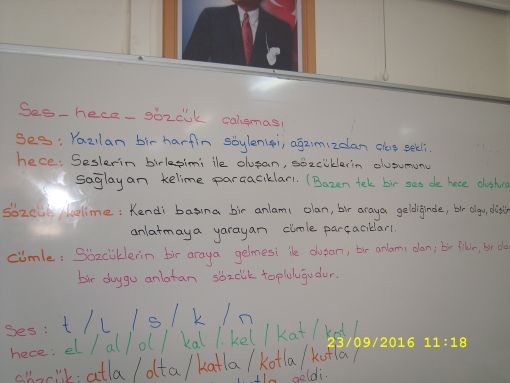 Ses - hece - sözcük çalışması
Ses: Yazılan bir harfin söylenişi, ağzımızdan çıkış şekli.
hece: Seslerin birleşimi ile oluşan, sözcüklerin oluşumunu
sağlayan kelime parçacıkları. (Bazen tek bir ses de hece oluştura
sözcük/kelime: Kendi başına bir anlamı olan, bir araya geldiğinde, bir olgu, düşün
anlatmaya yarayan cümle parçacıkları.
Cümle: Sözcüklerin bir araya gelmesi ile oluşan, bir anlamı olan; bir fikir, bir ola
bir duygu anlatan sözcük topluluğudur.
Ses: t / l / s / k / n
hece: el / al / ol / kal / kel / kat / kot /
23/09/2016 11:18
Sözcük: atla / olta / katla / kotla / kutla /
geldi.